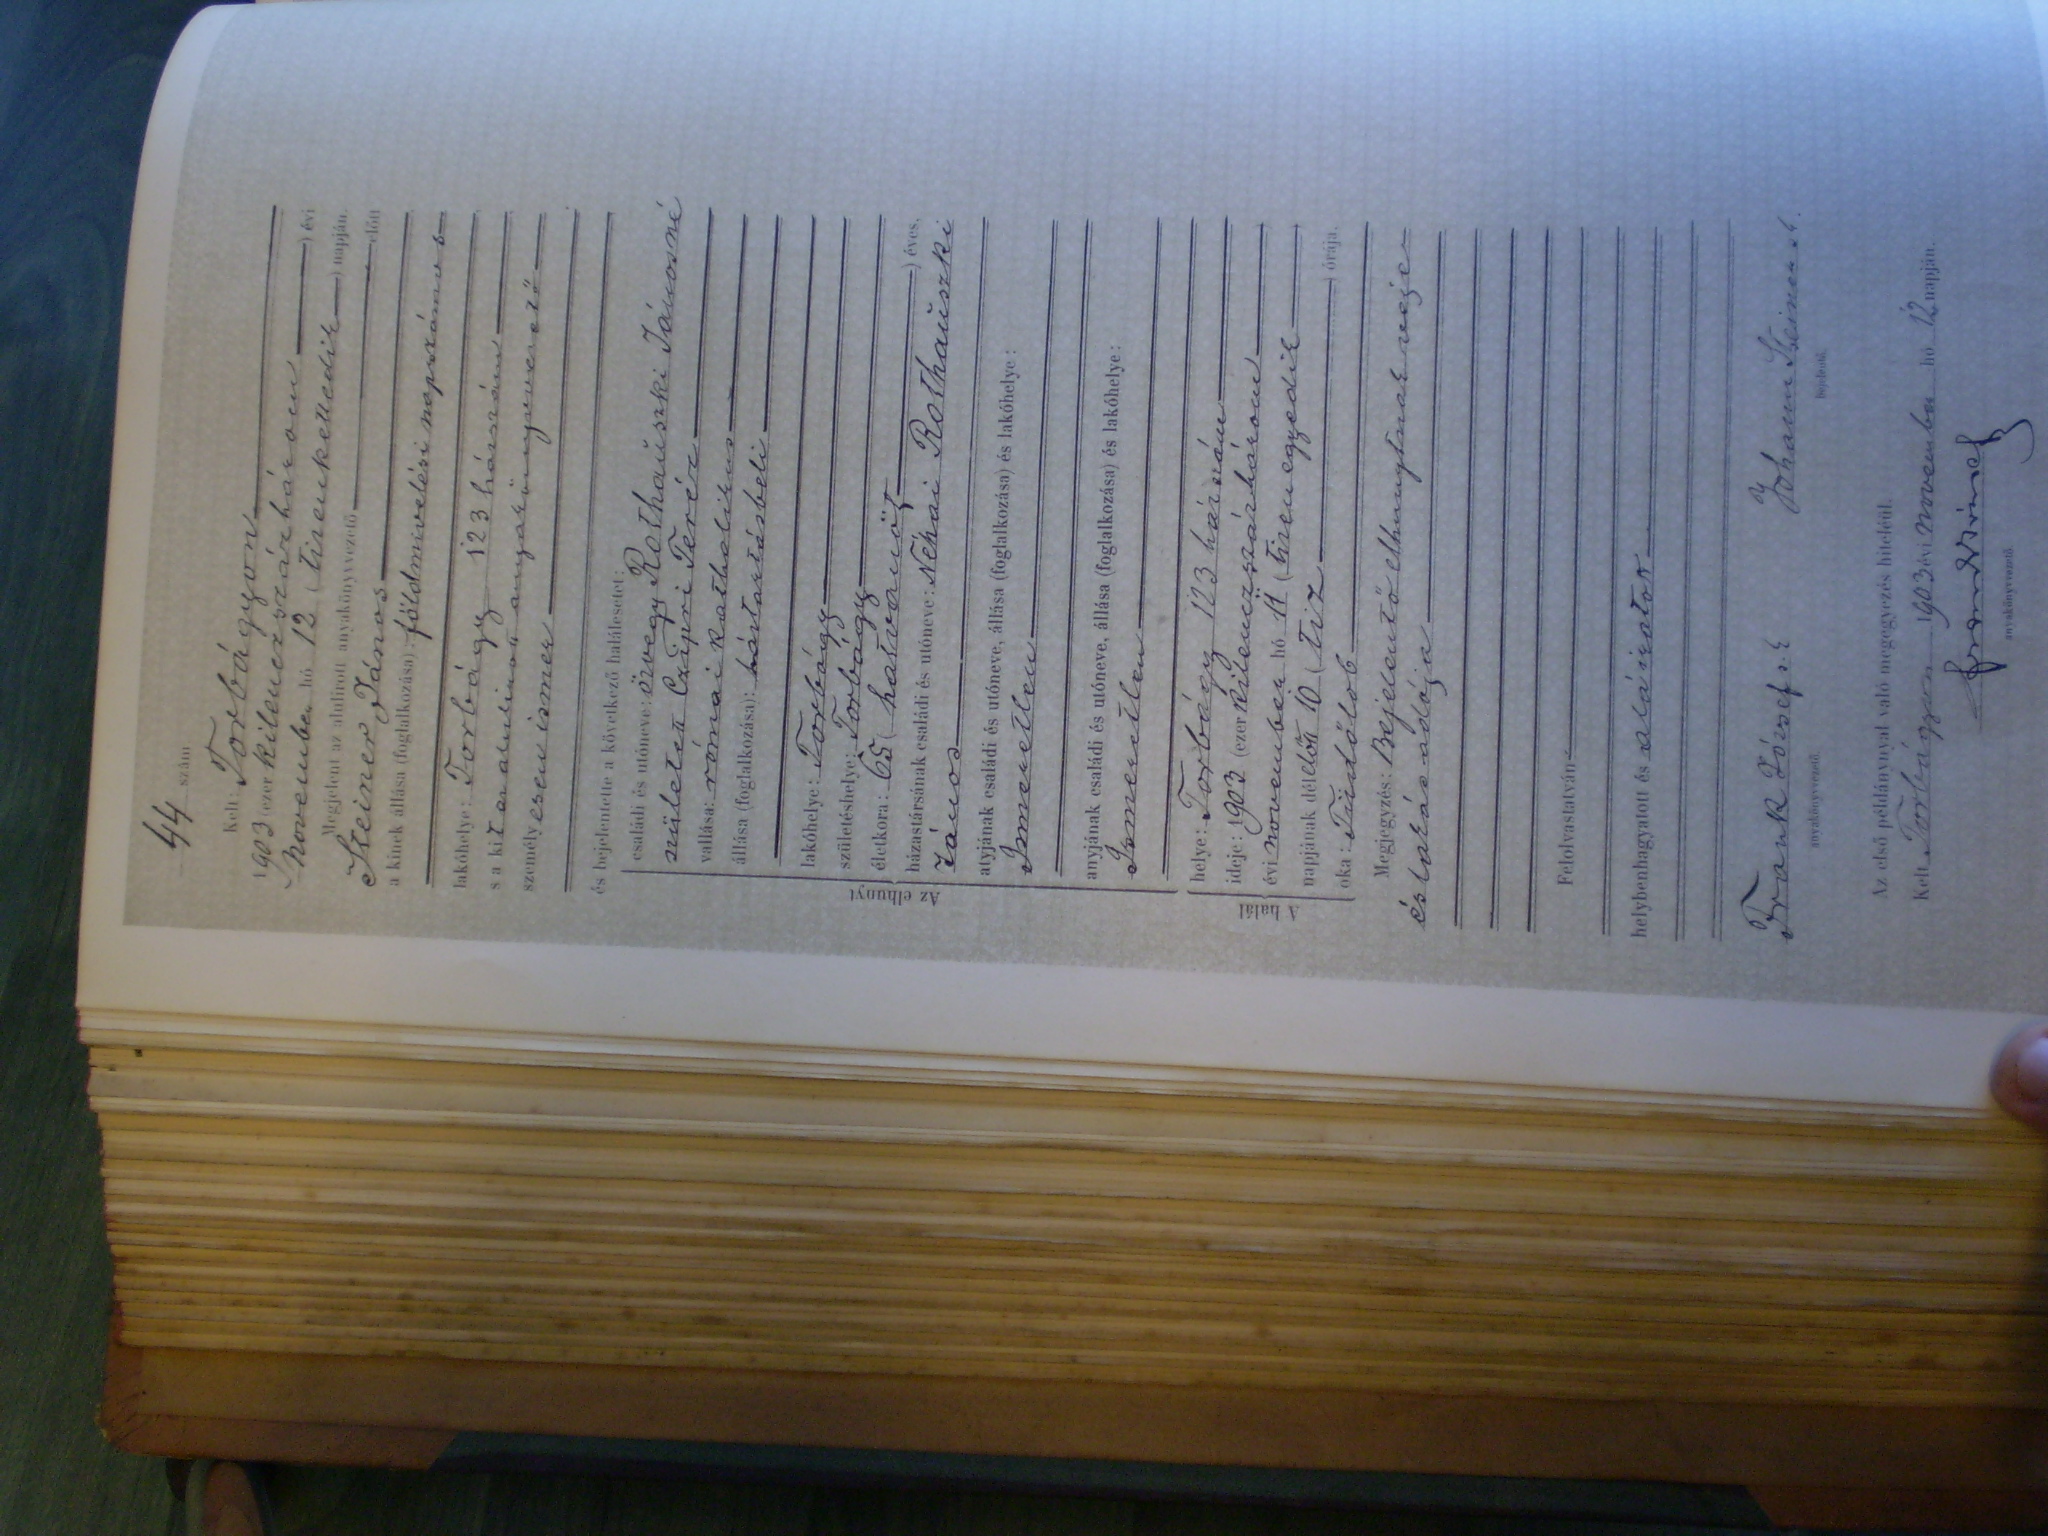 44 szám
Kelt: Torbágyon
1903 (ezer kilenczszázhárom ) évi
November hó 12 (tizenkettedik ) napján.
Megjelent az alulirott anyakönyvvezető előtt
Steiner János
a kinek állása (foglalkozása): földmivelési napszámos
lakóhelye: Torbágy 123 házszám
s a kit az alulirott anyakönyvvezető
személyesen ismer
és bejelentette a következő halálesetet:
Az elhunyt
családi és utóneve: özvegy Rothauszki Jánosné
született Czipri Teréz
vallása: római katholikus
állása (foglalkozása): háztartásbeli
lakóhelye: Torbágy
születéshelye: Torbágy
életkora: 65 (hatvanöt ) éves,
házastársának családi és utóneve: Néhai Rothauszki
János
atyjának családi és utóneve, állása (foglalkozása) és lakóhelye:
Ismeretlen
anyjának családi és utóneve, állása (foglalkozása) és lakóhelye:
Ismeretlen
A halál
helye: Torbágy 123 házszám
ideje: 1903 (ezer kilenczszázhárom
évi november hó 11 (tizenegyedik
napjának délelőtt 10 (tiz ) órája,
oka: Tüdőlob
Megjegyzés: Bejelentő elhunytnak veje
és lakásadója
Felolvastatván
helybenhagyatott és aláiratott
Frank József s. k. Johann Steiner s. k.
anyakönyvvezető. bejelentő.
Az első példánynyal való megegyezés hiteléül.
Kelt Torbágyon 1903 évi November hó 12 napján.
anyakönyvvezető.